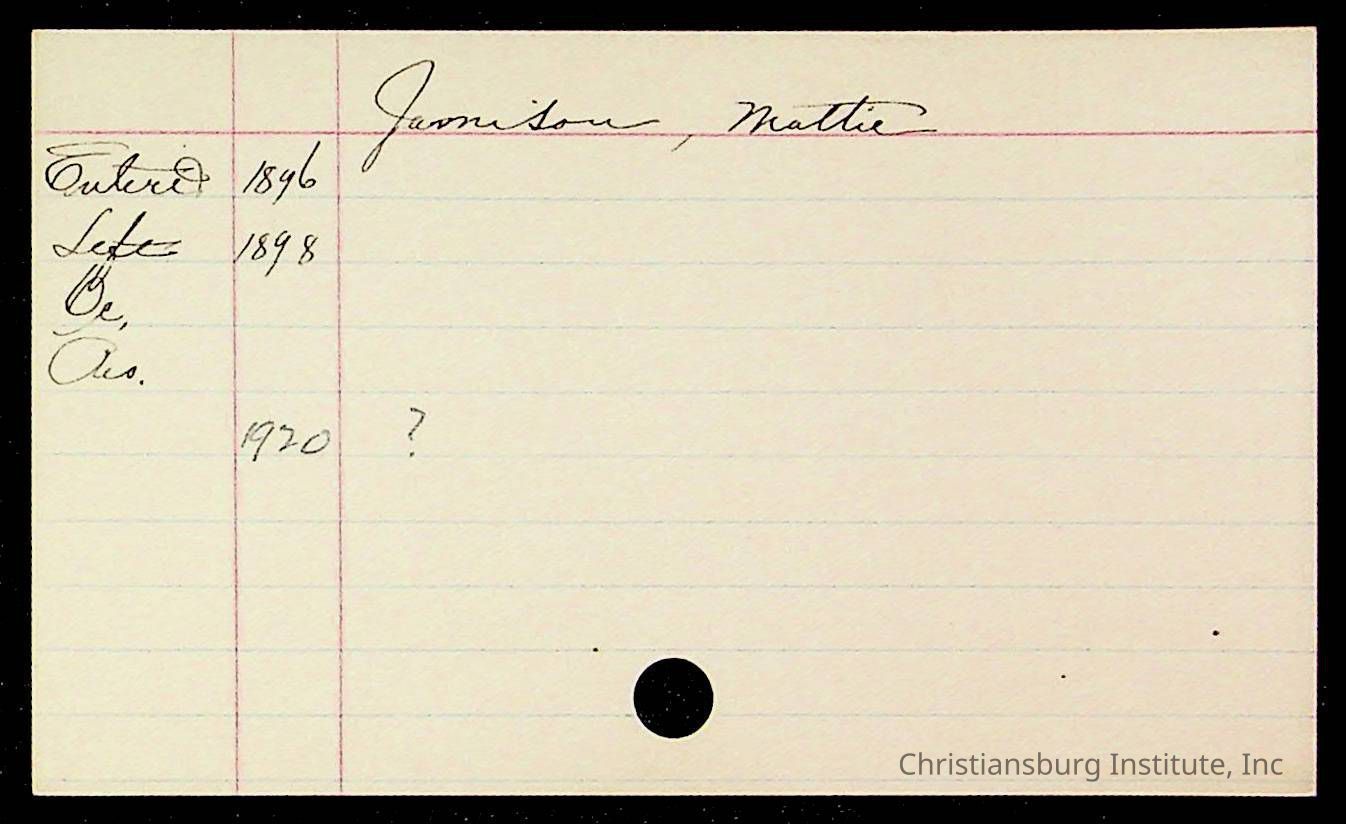 Jamison, Mattie
Entered 1896
Left 1898
Oc.
As.
1920 ?
Christiansburg Institute, Inc